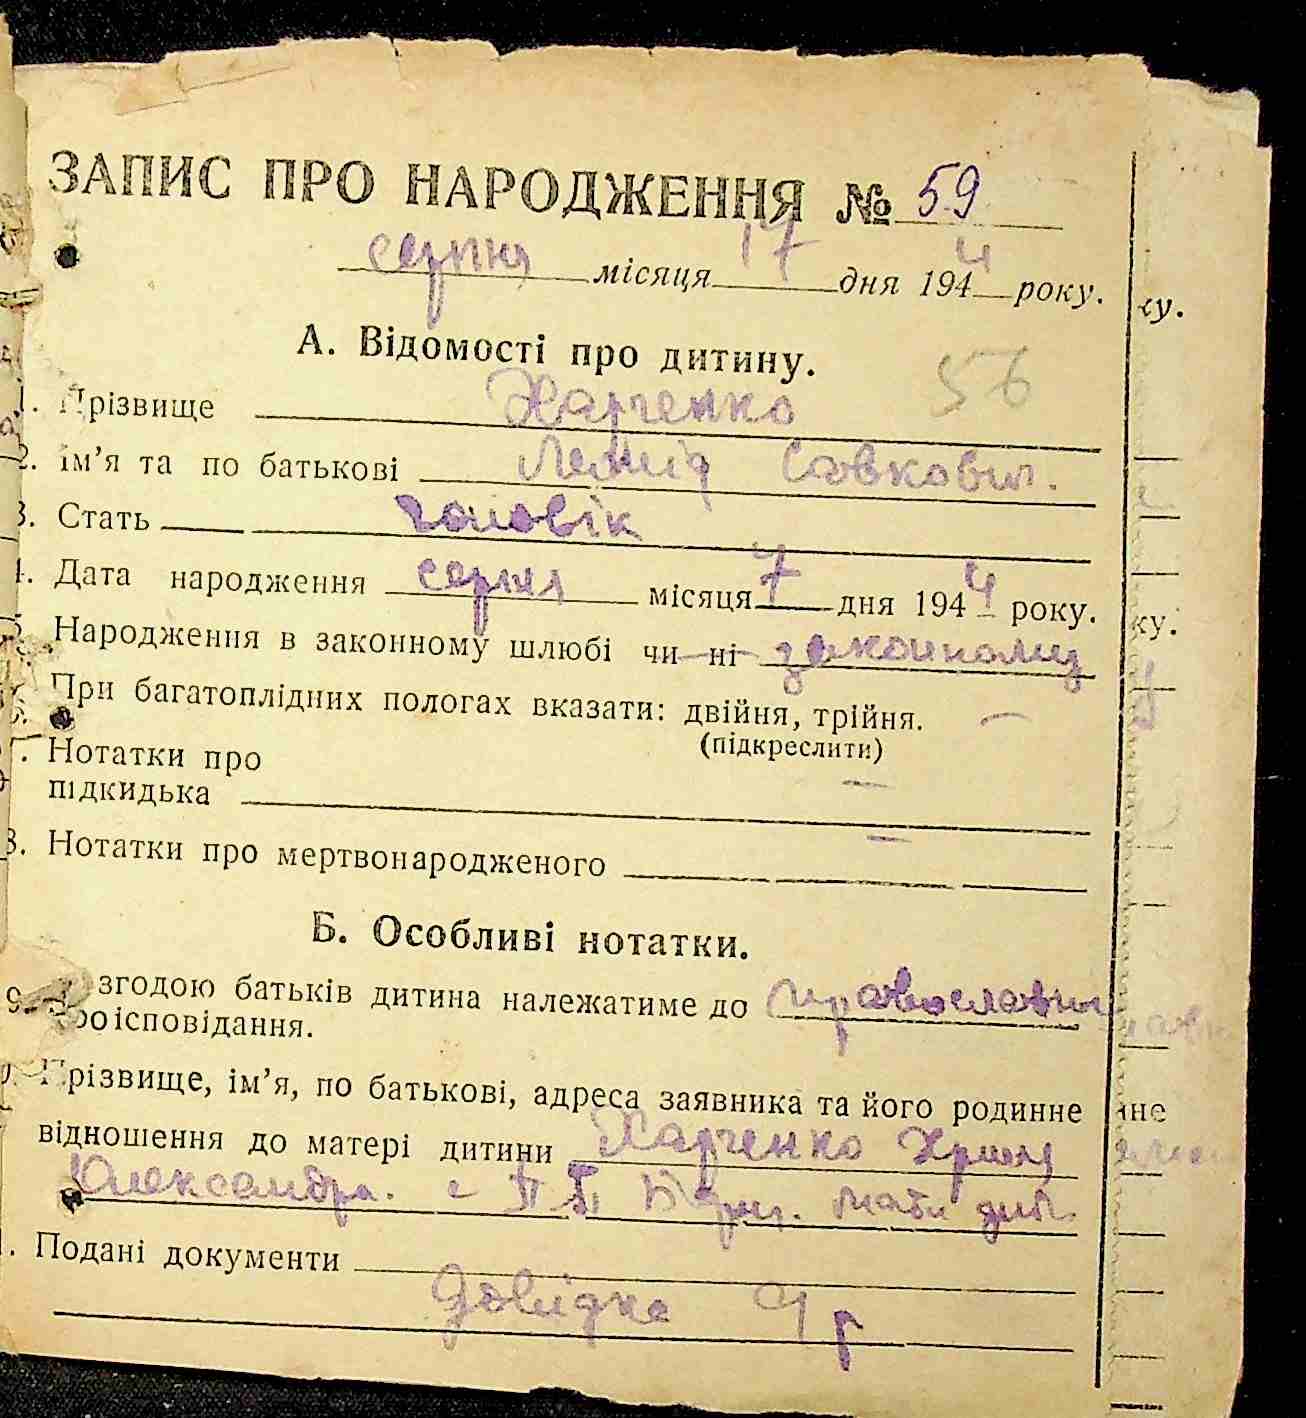 ЗАПИС ПРО НАРОДЖЕННЯ № 59
серпня місяця 17 дня 1944 року.
А. Відомості про дитину.
56
1. Прізвище Харченко
2. Ім’я та по батькові Леонід Савкович.
3. Стать чоловік
4. Дата народження серпня місяця 7 дня 1944 року.
5. Народження в законному шлюбі чи ні законному
6. При багатоплідних пологах вказати: двійня, трійня. —
(підкреслити)
7. Нотатки про
підкидька —
8. Нотатки про мертвонародженого —
Б. Особливі нотатки.
9. згодою батьків дитина належатиме до православн
роісповідання.
Прізвище, ім’я, по батькові, адреса заявника та його родинне
відношення до матері дитини Харченко
Олександра. с мати дит.
Подані документи
Довідка